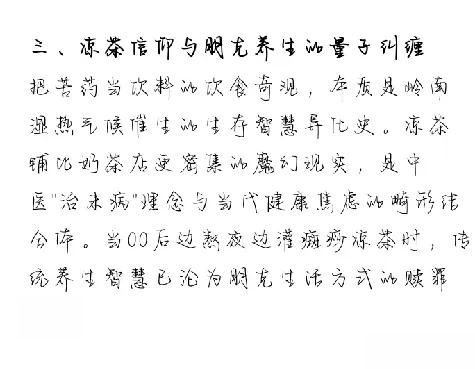 三、凉茶信仰与朋克养生的量子纠缠
把苦药当饮料的饮食奇观，本质是岭南
湿热气候催生的生存智慧异化史。凉茶
铺比奶茶店更密集的魔幻现实，是中
医"治未病"理念与当代健康焦虑的畸形结
合体。当00后边熬夜边灌癍痧凉茶时，传
统养生智慧已沦为朋克生活方式的赎罪